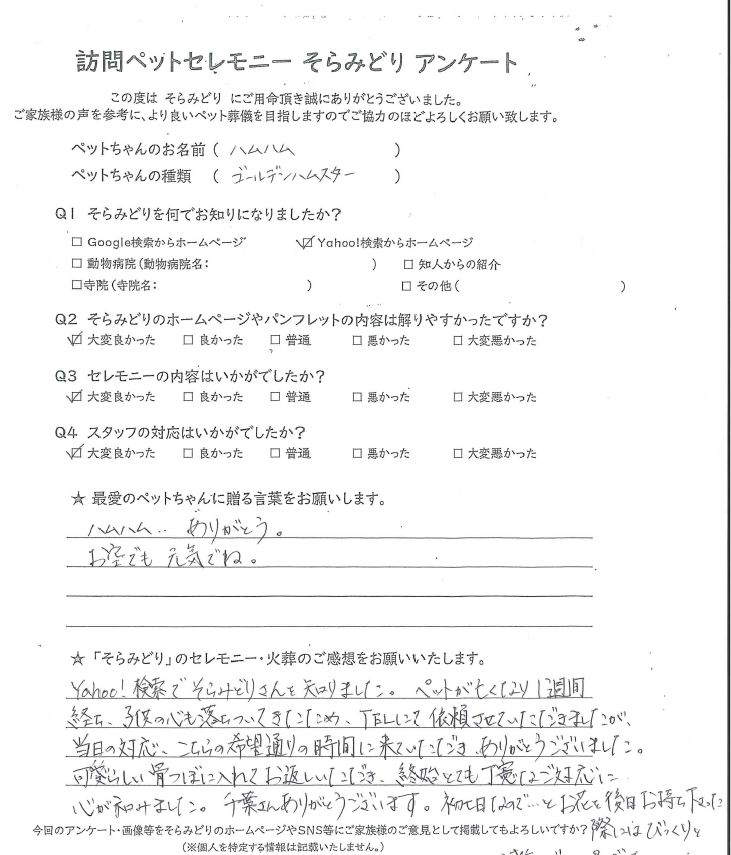 訪問ペットセレモニー そらみどり アンケート
この度は そらみどり にご用命頂き誠にありがとうございました。
ご家族様の声を参考に、より良いペット葬儀を目指しますのでご協力のほどよろしくお願い致します。
ペットちゃんのお名前 ( ハムハム )
ペットちゃんの種類 ( ゴールデンハムスター )
Q1 そらみどりを何でお知りになりましたか?
□ Google検索からホームページ ☑ Yahoo!検索からホームページ
□ 動物病院(動物病院名: ) □ 知人からの紹介
□寺院(寺院名: ) □ その他( )
Q2 そらみどりのホームページやパンフレットの内容は解りやすかったですか?
☑ 大変良かった □ 良かった □ 普通 □ 悪かった □ 大変悪かった
Q3 セレモニーの内容はいかがでしたか?
☑ 大変良かった □ 良かった □ 普通 □ 悪かった □ 大変悪かった
Q4 スタッフの対応はいかがでしたか?
☑ 大変良かった □ 良かった □ 普通 □ 悪かった □ 大変悪かった
☆ 最愛のペットちゃんに贈る言葉をお願いします。
ハムハム‥ ありがとう。
お空でも 元気でね。
☆「そらみどり」のセレモニー・火葬のご感想をお願いいたします。
Yahoo!検索で そらみどりさんを知りました。 ペットが亡くなり1週間
経ち、子供の心も落ちついてきたため、TELにて依頼させていただきましたが、
当日の対応、こちらの希望通りの時間に来ていただき、ありがとうございました。
可愛らしい骨つぼに入れてお返しいただき、終始とても丁寧なご対応に
心が和みました。千葉さんありがとうございます。初七日なので…とお花を後日お持ち下さった
際にはびっくりと
今回のアンケート・画像等をそらみどりのホームページやSNS等にご家族様のご意見として掲載してもよろしいですか?
(※個人を特定する情報は記載いたしません。)